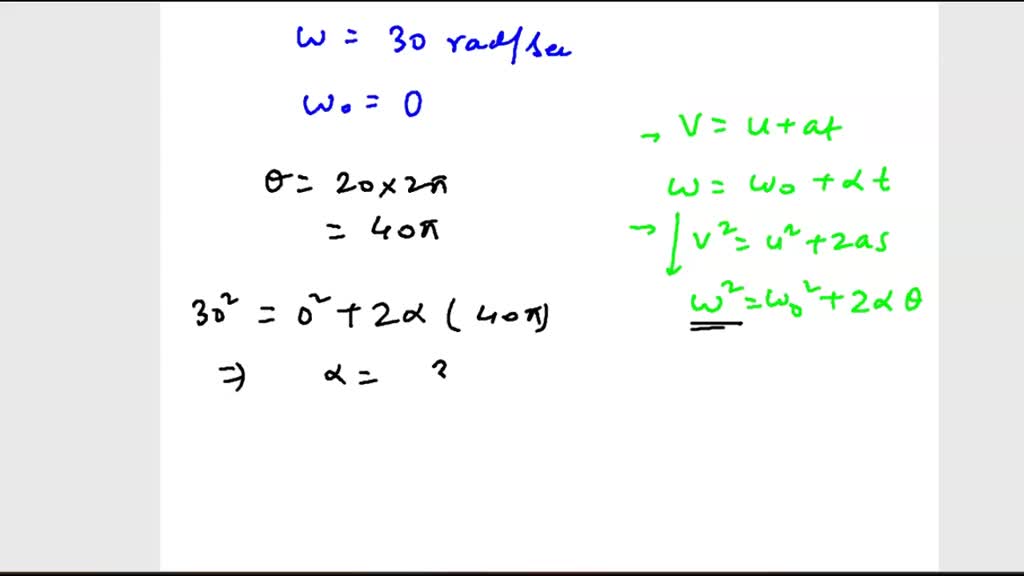 ω = 30 rad/sec
ω₀ = 0
θ = 20 × 2π
= 40π
30² = 0² + 2α (40π)
⇒ α = ?
→ V = u + at
ω = ω₀ + αt
→ V² = u² + 2as
ω² = ω₀² + 2αθ